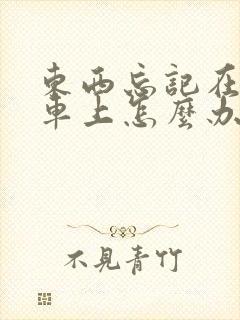 東西忘記在
車上怎麼办
不見青竹